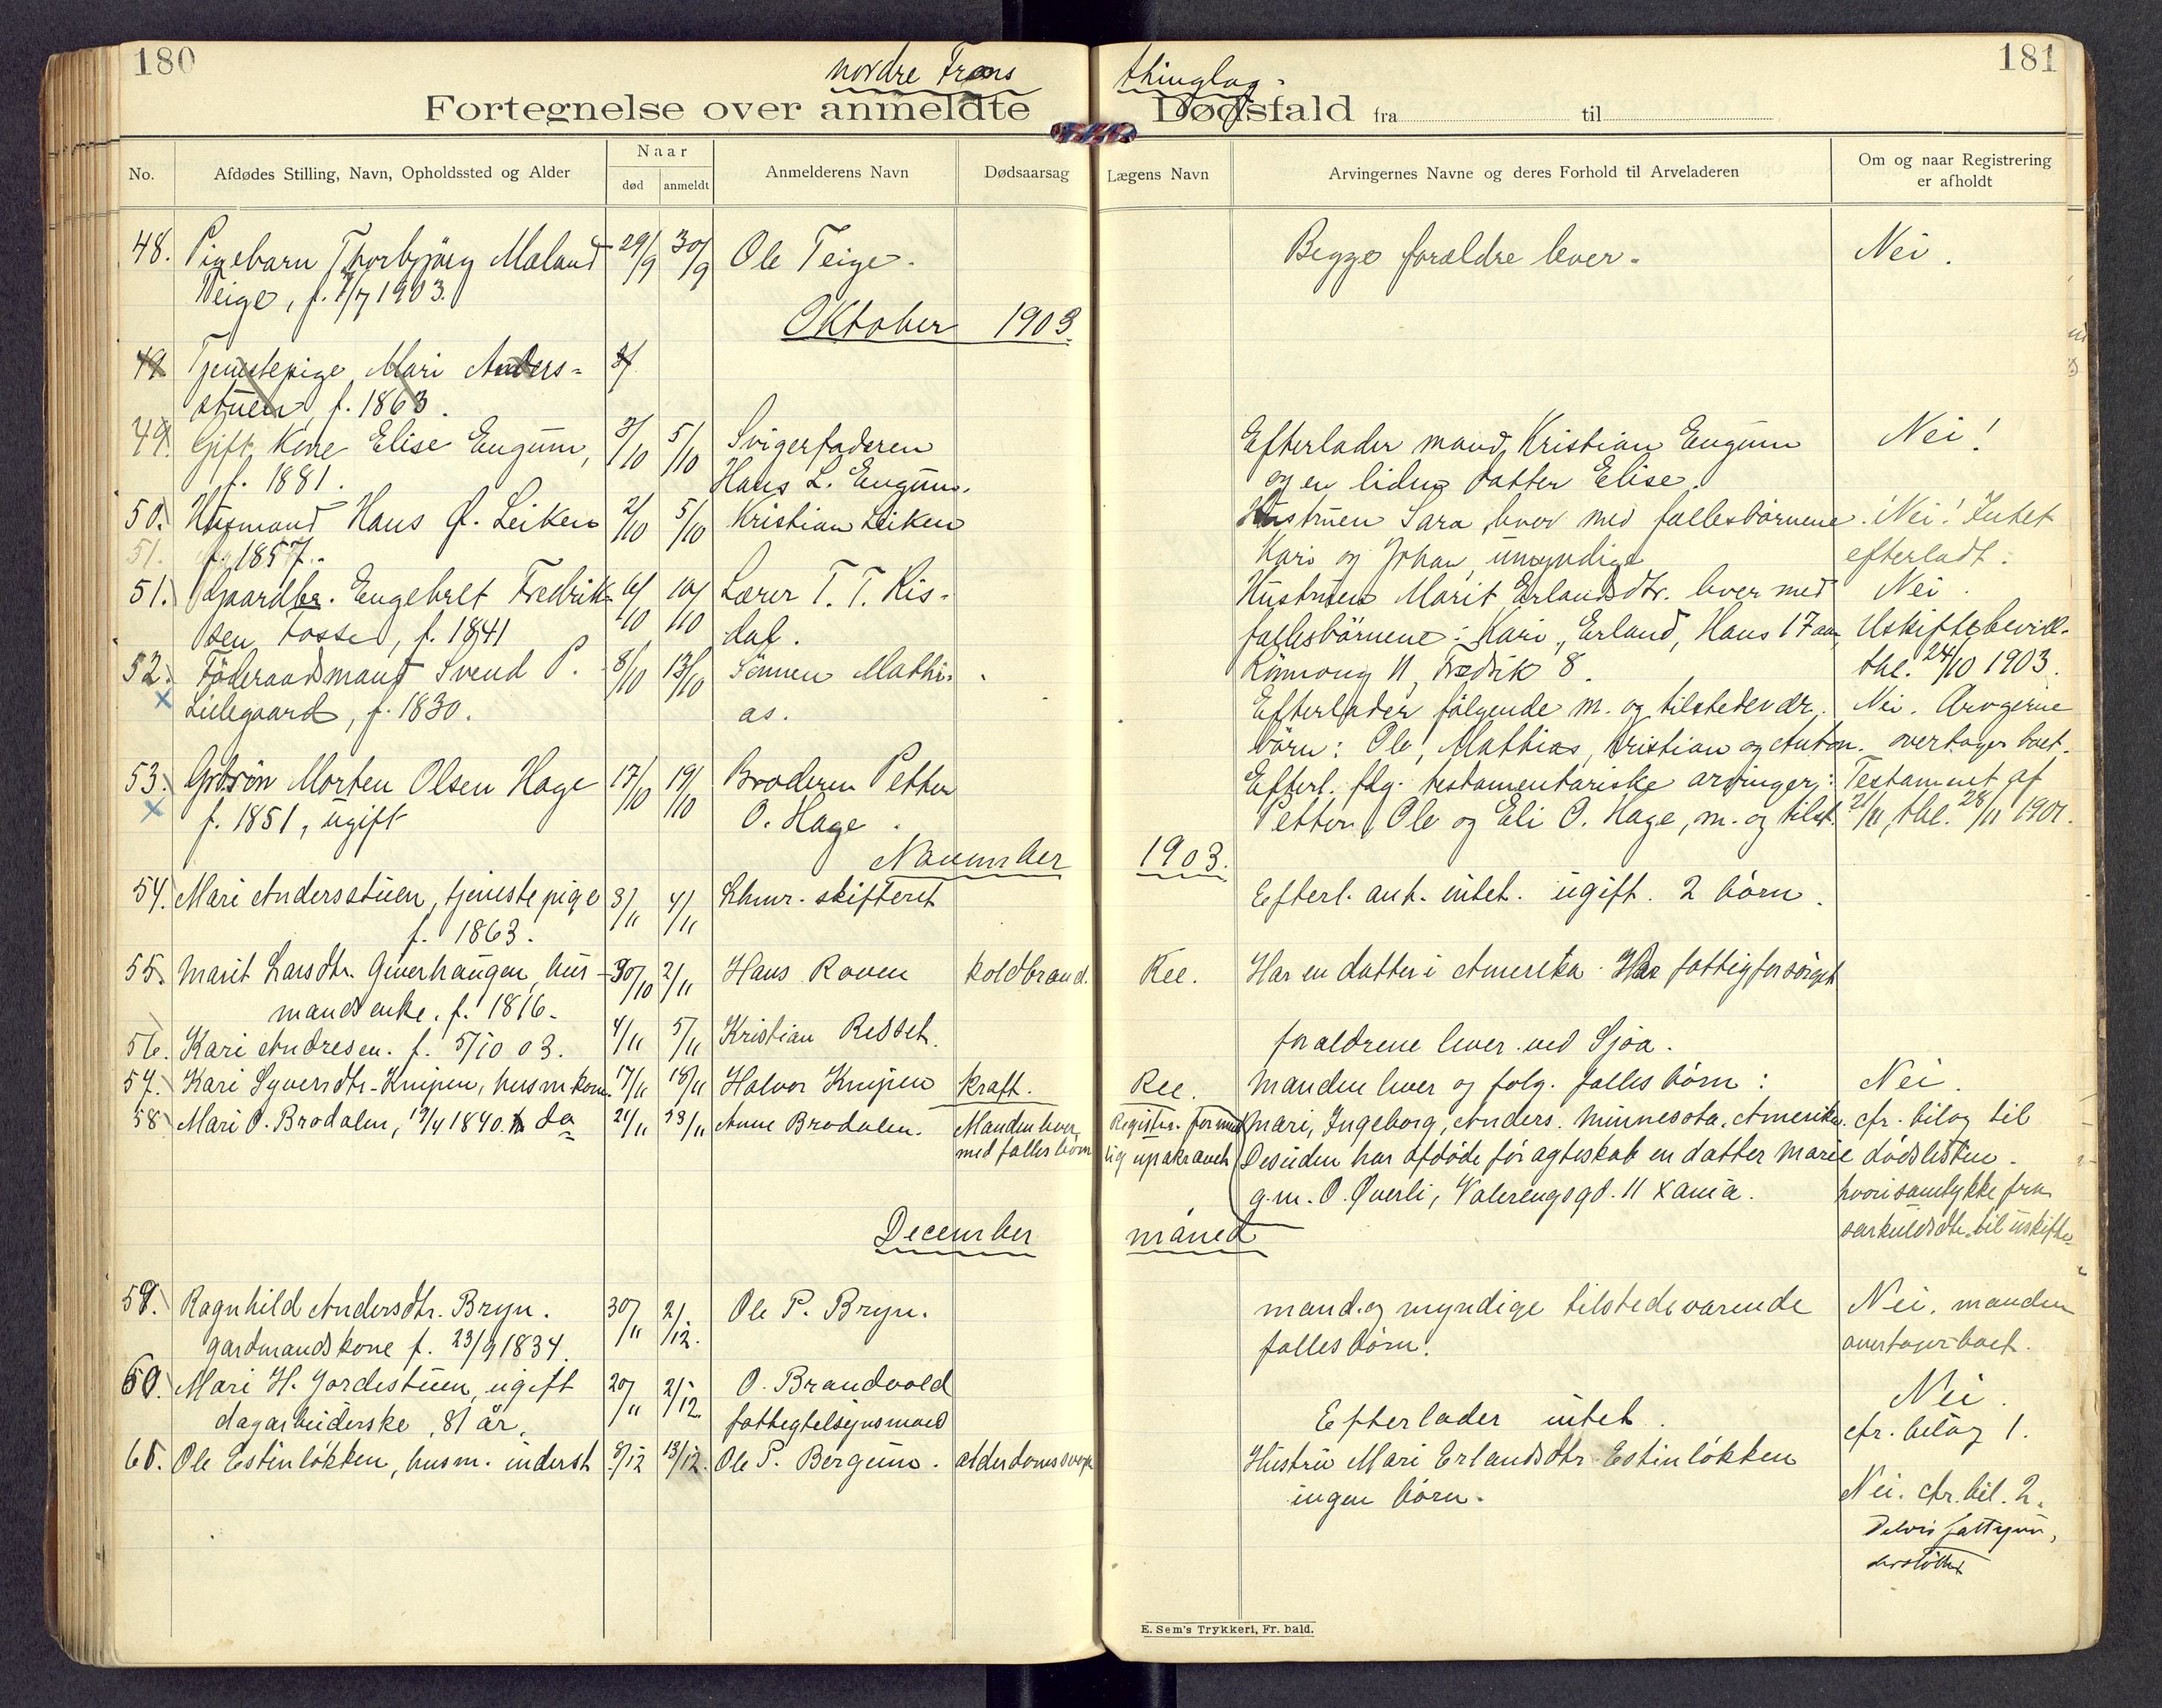 180
181
nordre Frons thinglag.
Fortegnelse over anmeldte Dødsfald fra til
No.
Afdødes Stilling, Navn, Opholdssted og Alder
Naar
død
anmeldt
Anmelderens Navn
Dødsaarsag
Lægens Navn
Arvingernes Navne og deres Forhold til Arveladeren
Om og naar Registrering
er afholdt
48. Pigebarn Thorbjørg Maland 29/9 30/9 Ole Teige. Begge forældre lever. Nei.
Teige, f. 7/7 1903.
Oktober 1903.
49. Tjenestepige Mari Anders=
stuen, f. 1863.
49. Gift Kone Elise Engum, 3/10 5/10 Svigerfaderen Efterlader mand, Kristian Engum Nei!
f. 1881. Hans L. Engum. og en liden datter Elise.
50. Husmand Hans Leiken 2/10 5/10 Kristian Leiken Hustruen Sara lever med fællesbørnene Nei! Intet
51. f. 1857. Kari og Johan, umyndige efterladt.
51. Gaardbr. Engebret Fredrik- 10/10 Lærer T. T. Ris- Hustruen Marit Erlandsdtr. lever med Nei.
sen Fosse, f. 1841 dal. fællesbørnene: Kari, Erland, Hans 17 aar, Uskiftebevill.
Rønnoug 11, Fredrik 8. thl. 24/10 1903.
52. Føderaadsmand Svend P. 8/10 13/10 Sønnen Mathi- Efterlader følgende m. og tilstedevær. Nei. Arvingerne
Lillegaard, f. 1830. as. børn: Ole, Mathias, Kristian og Anton. overtager boet.
53. Grbsøn Morten Olsen Hage 17/10 19/10 Broderen Petter Efterl. flg. testamentariske arvinger: Testament af
f. 1851, ugift O. Hage. Petter, Ole og Eli O. Hage, m. og tilst. 21/11, thl. 28/11 1901.
November 1903.
54. Mari Andersstuen, tjenestepige 3/11 4/11 Lhmr. skifteret Efterl. ant. intet. ugift. 2 børn.
f. 1863.
55. Marit Larsdtr. Gjiverhaugen, hus- 30/10 2/11 Hans Roven Koldbrand. Ree. Har en datter i Amerika. Har fattigforsørget
mandsenke. f. 1816.
56. Kari Andresen. f. 5/10 03. 4/11 5/11 Kristian Risset. forældrene lever ved Sjoa.
57. Kari Syversdtr. Knipen, husm.kone. 17/11 18/11 Halvor Knipen Kræft. Ree. Manden lever og følg. fælles børn: Nei.
58 Mari O. Brodalen, 19/4 1840. do 21/11 23/11 Anne Brodalen. Manden lever Registr. forment- Mari, Ingeborg, Anders. Minnesota. Amerika. cfr. bilag til
med fælles børn lig upåkrævet Desuden har afdøde før ægteskab en datter Marie dødslisten.
g.m. O. Øverli, Valerengsgd. 11 Xania. hvori samtykke fra
særkuldsdtr. til uskifte
December måned
59. Ragnhild Andersdtr. Bryn. 30/11 2/12. Ole P. Bryn. mand. og myndige tilstedeværende Nei. manden
gardmandskone f. 23/9 1834. fælles børn. overtager boet.
60. Mari H. Jordestuen, ugift 20/11 2/12. O. Brandvold Nei.
dagarbeiderske, 81 år. fattigtilsynsmand Efterlader intet. cfr. bilag 1.
61. Ole Estinløkken, husm. inderst 8/12 13/12. Ole P. Bergum. alderdomssvagh. Hustru Mari Erlandsdtr Estinløkken
ingen børn. Nei. cfr. bil. 2.
Delvis fattigun-
derstøttet
E. Sem's Trykkeri, Fr. hald.